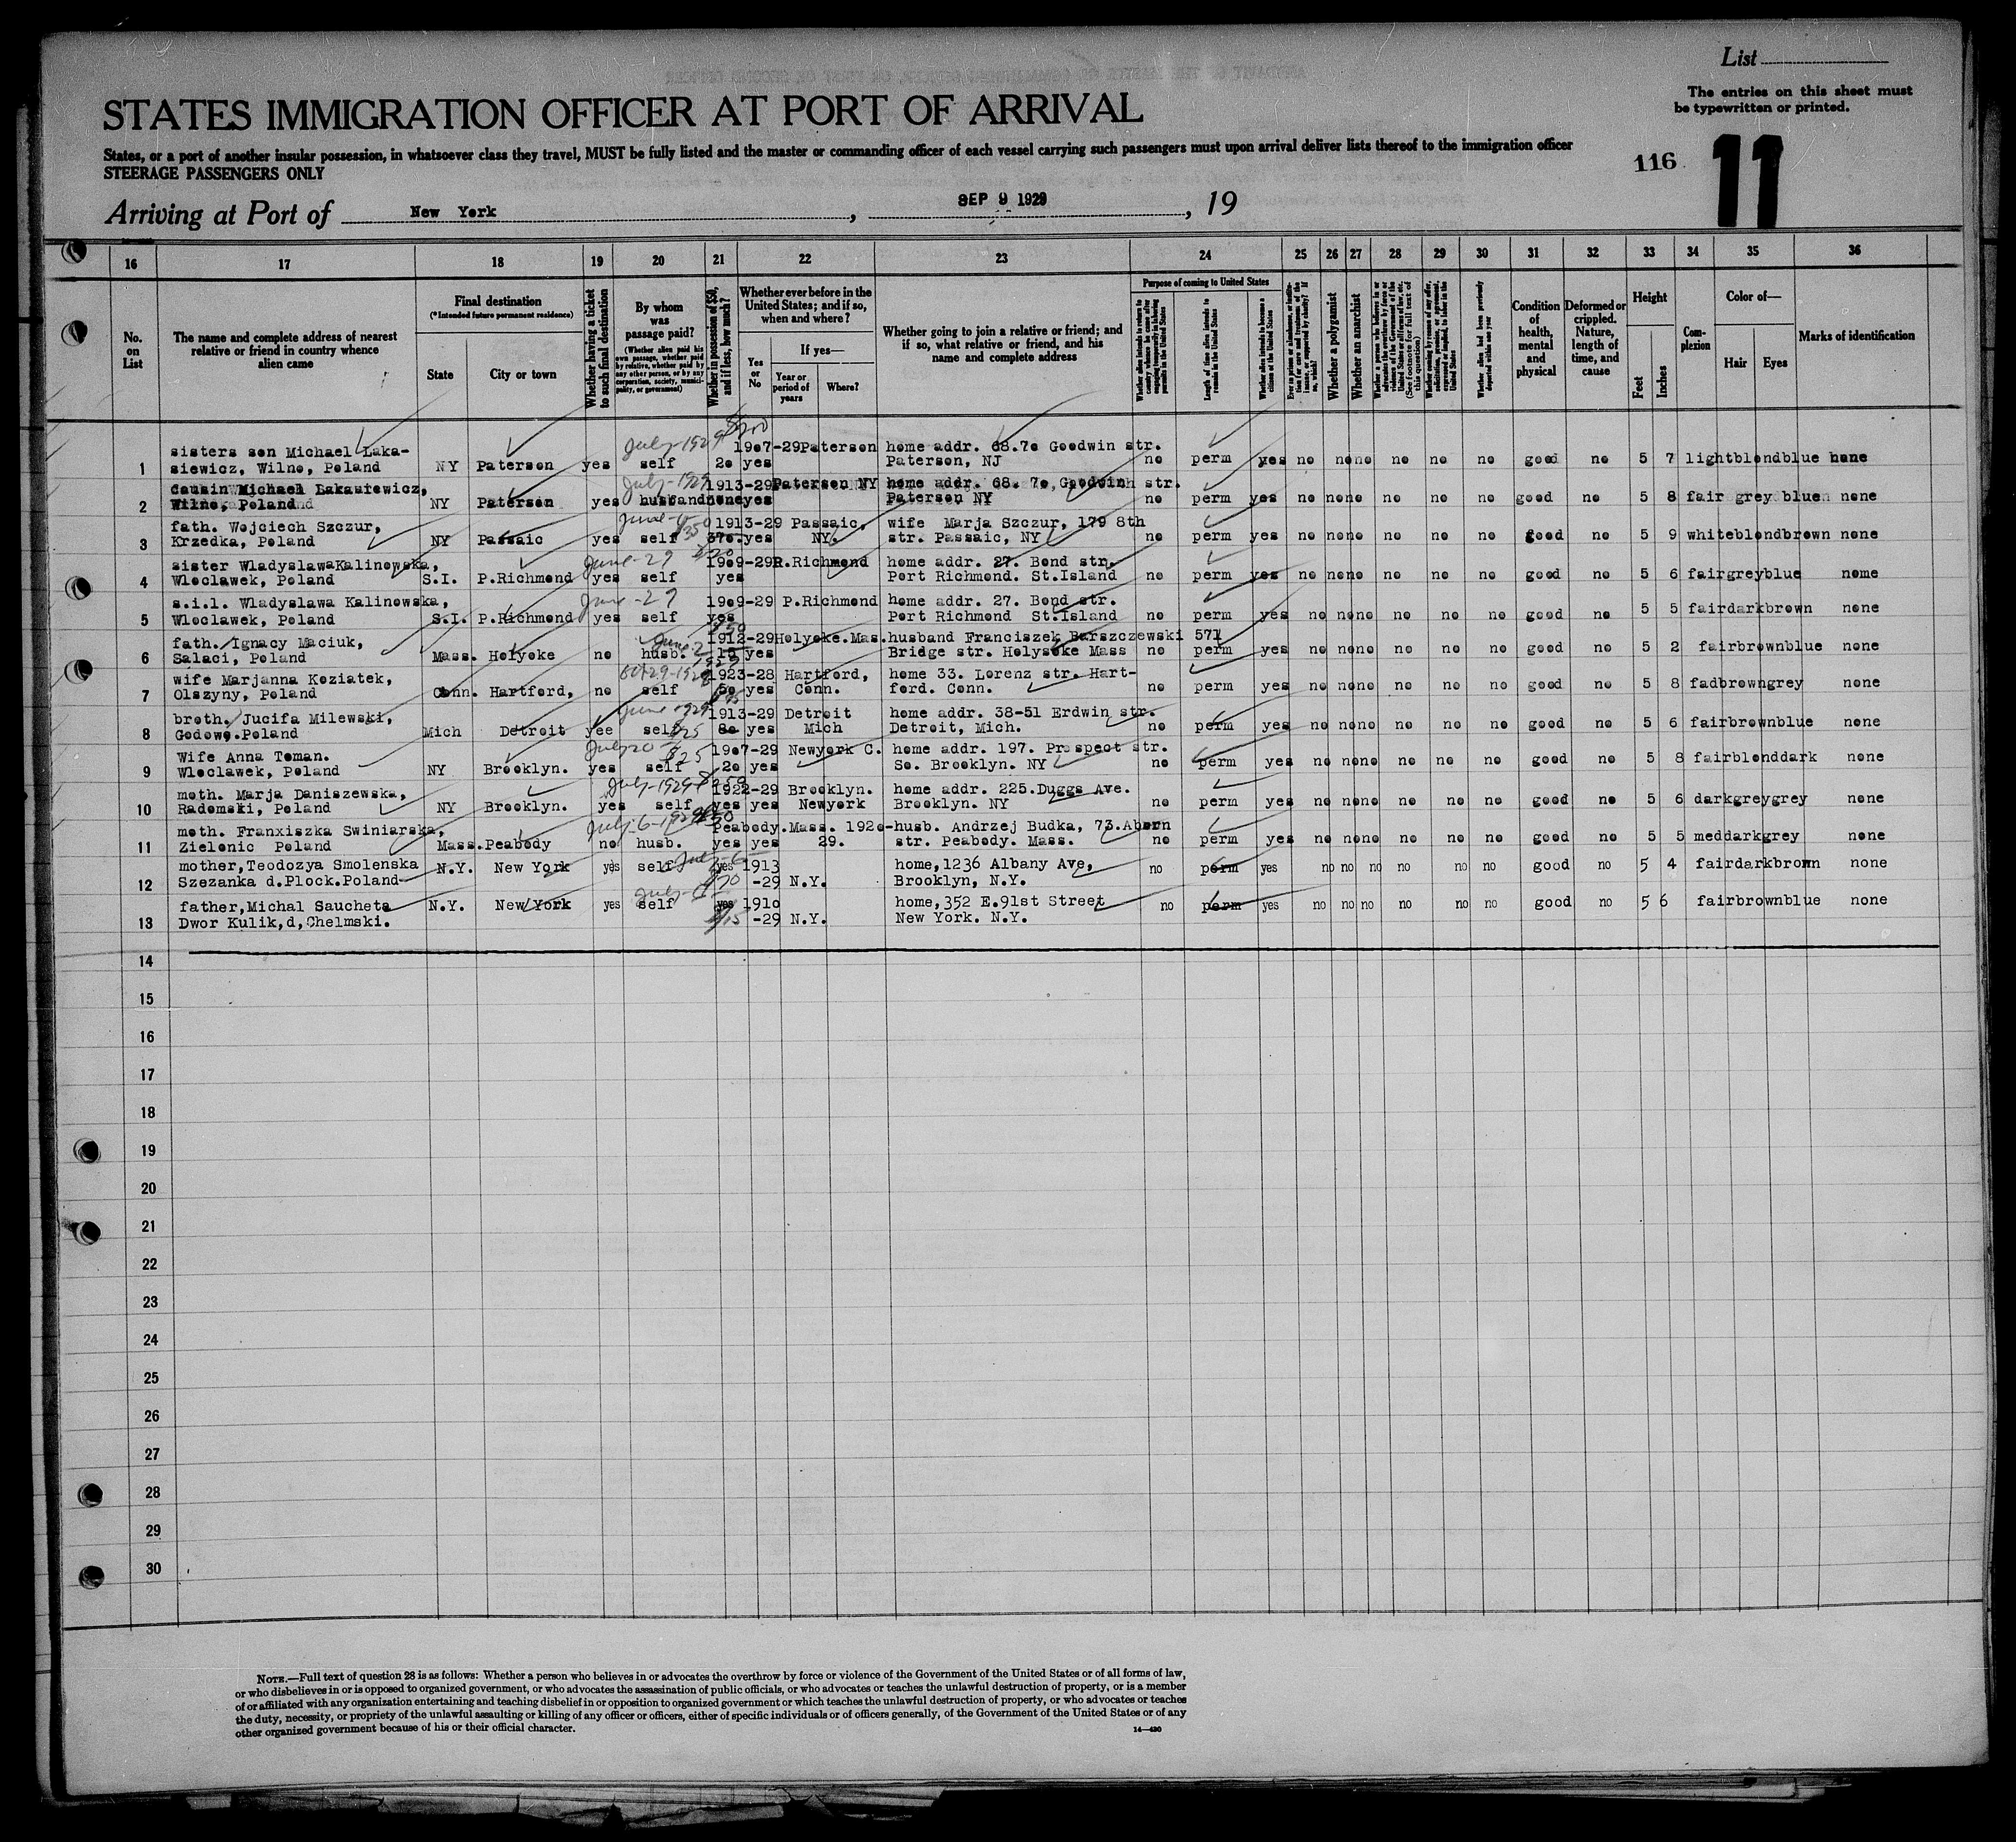 List
The entries on this sheet must
be typewritten or printed.
STATES IMMIGRATION OFFICER AT PORT OF ARRIVAL
States, or a port of another insular possession, in whatsoever class they travel, MUST be fully listed and the master or commanding officer of each vessel carrying such passengers must upon arrival deliver lists thereof to the immigration officer
STEERAGE PASSENGERS ONLY
116 11
Arriving at Port of New York, SEP 9 1929, 19
16 17 18 19 20 21 22 23 24 25 26 27 28 29 30 31 32 33 34 35 36
No. on List
The name and complete address of nearest relative or friend in country whence alien came
Final destination
(*Intended future permanent residence)
State
City or town
Whether having a ticket to such final destination
By whom was passage paid?
(Whether alien paid his own passage, whether paid by relative, whether paid by any other person, or by any corporation, society, municipality, or government)
Whether in possession of $50, and if less, how much?
Whether ever before in the United States; and if so, when and where?
Yes or No
If yes—
Year or period of years
Where?
Whether going to join a relative or friend; and if so, what relative or friend, and his name and complete address
Purpose of coming to United States
Length of time alien intends to remain in the United States
Whether alien intends to become a citizen of the United States
Whether a polygamist
Whether an anarchist
Condition of health, mental and physical
Deformed or crippled. Nature, length of time, and cause
Height
Feet
Inches
Complexion
Color of—
Hair
Eyes
Marks of identification
July-1929 $200
sisters son Michael Laka- 1907-29 Paterson home addr. 68.70 Goodwin str.
1 siewicz, Wilno, Poland NY Paterson yes self 20 yes Paterson, NJ no perm yes no no no no no no good no 5 7 light blond blue none
July-1929
cousin Michael Lakasiewicz, 1913-29 Paterson NY home addr. 68. 70, Goodwin str.
2 Wilno, Poland NY Paterson yes husband none yes Paterson NY no perm yes no no no no no no good no 5 8 fair grey blue none
fath. Wojciech Szczur, 1913-29 Passaic, wife Marja Szczur, 179 8th
3 Krzedka, Poland NY Passaic yes self 370. yes NY. str. Passaic, NY no perm yes no no no no no no good no 5 9 white blond brown none
June-29
sister Wladyslawa Kalinowska, 1909-29 P.Richmond home addr. 27. Bond str.
4 Wloclawek, Poland S.I. P.Richmond yes self yes Port Richmond. St.Island no perm yes no no no no no no good no 5 6 fair grey blue nome
June-29
s.i.l. Wladyslawa Kalinowska, 1909-29 P.Richmond home addr. 27. Bond str.
5 Wloclawek, Poland S.I. P.Richmond yes self yes Port Richmond St.Island no perm yes no no no no no no good no 5 5 fair dark brown none
fath. Ignacy Maciuk, 1912-29 Holyoke.Mas. husband Franciszek Barszczewski 571
6 Salaci, Poland Mass. Holyoke no husb. 15 yes Bridge str. Holysoke Mass no perm yes no no no no no no good no 5 2 fair brown blue none
wife Marjanna Koziatek, 1923-28 Hartford, home 33. Lorenz str. Hart-
7 Olszyny, Poland Conn. Hartford, no self 50 yes Conn. ford. Conn. no perm yes no no no no no no good no 5 8 fad brown grey none
June 1929
broth. Jucifa Milewski, 1913-29 Detroit home addr. 38-51 Erdwin str.
8 Godowo.Poland Mich Detroit yee self 80 yes Mich Detroit, Mich. no perm yes no no no no no no good no 5 6 fair brown blue none
July 20 $25
Wife Anna Toman. 1907-29 Newyork C. home addr. 197. Prospect str.
9 Wloclawek, Poland NY Brooklyn. yes self 20 yes So. Brooklyn. NY no perm yes no no no no no no good no 5 8 fair blond dark none
July-1929
moth. Marja Daniszewska, 1922-29 Brooklyn. home addr. 225.Duggs Ave.
10 Radomski, Poland NY Brooklyn. yes self yes yes Newyork Brooklyn. NY no perm yes no no no no no no good no 5 6 dark grey grey none
July-6-1929
moth. Franxiszka Swiniarska, Peabody.Mass. 1920- husb. Andrzej Budka, 73.Aborn
11 Zielonic Poland Mass. Peabody no husb. yes yes 29. str. Peabody. Mass. no perm yes no no no no no no good no 5 5 med dark grey none
July-6
mother,Teodozya Smolenska N.Y. New York yes self yes 1913 home,1236 Albany Ave, no perm yes no no no no no no good no 5 4 fair dark brown none
12 Szezanka d.Plock.Poland -29 N.Y. Brooklyn, N.Y.
father,Michal Saucheta N.Y. New York yes self yes 1910 home,352 E.91st Street no perm yes no no no no no no good no 5 6 fair brown blue none
13 Dwor Kulik,d,Chelmski. $15 -29 N.Y. New York. N.Y.
14
15
16
17
18
19
20
21
22
23
24
25
26
27
28
29
30
NOTE.—Full text of question 28 is as follows: Whether a person who believes in or advocates the overthrow by force or violence of the Government of the United States or of all forms of law,
or who disbelieves in or is opposed to organized government, or who advocates the assassination of public officials, or who advocates or teaches the unlawful destruction of property, or is a member
of or affiliated with any organization entertaining and teaching disbelief in or opposition to organized government or which teaches the unlawful destruction of property, or who advocates or teaches
the duty, necessity, or propriety of the unlawful assaulting or killing of any officer or officers, either of specific individuals or of officers generally, of the Government of the United States or of any
other organized government because of his or their official character.
14—430